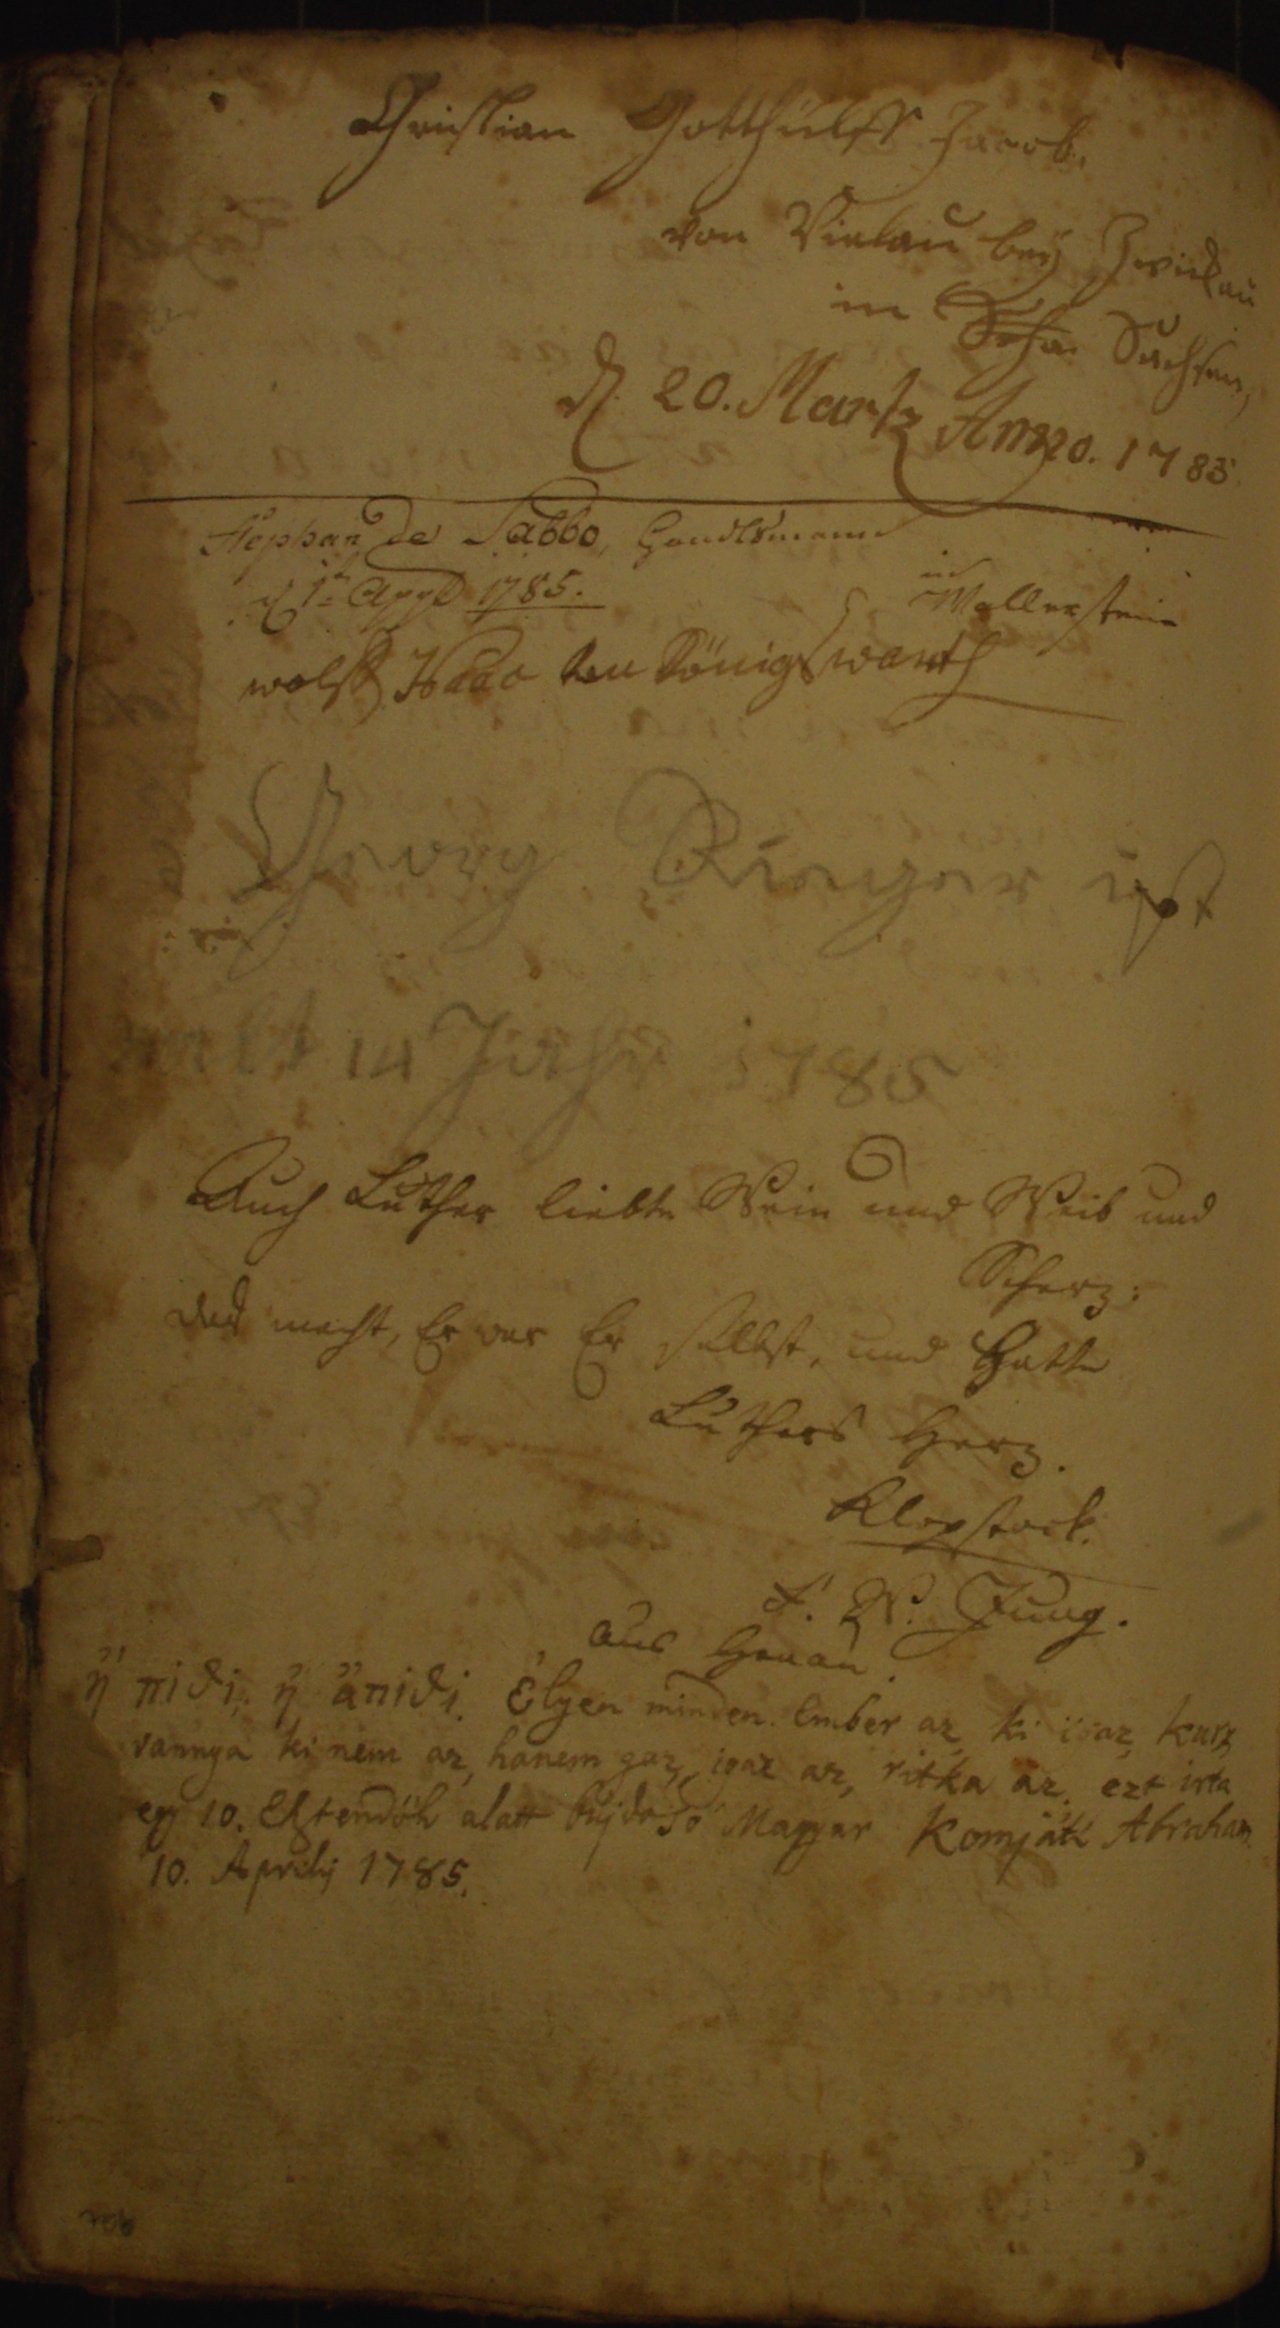 Christian Gotthülff Jacob.
von Vielau beÿ Zwickau
in Sachsen,
d. 20. Martz Anno. 1785
Stephan de Sabbo, Handlsmann
d 1t Appl 1785.
in Wallerstein
Königswarth
Georg Rieger ist
alt 14 Jahr 1785
Auch Luther liebte Wein und Weib und
Scherz:
das macht, Er war Er selbst, und hatte
Luthers Herz.
Klopstock.
F. W. Jung.
aus Hanau.
ἢ πιθι, ἢ ἄπιθι. Élyen minden Ember az ki igaz,
vannya ki nem az, hanem gaz, igaz az, ritka az. ezt irta
egy 10. Esztendök alatt bújdosó Magyar Komjáti Abraham
10. Aprilij 1785.